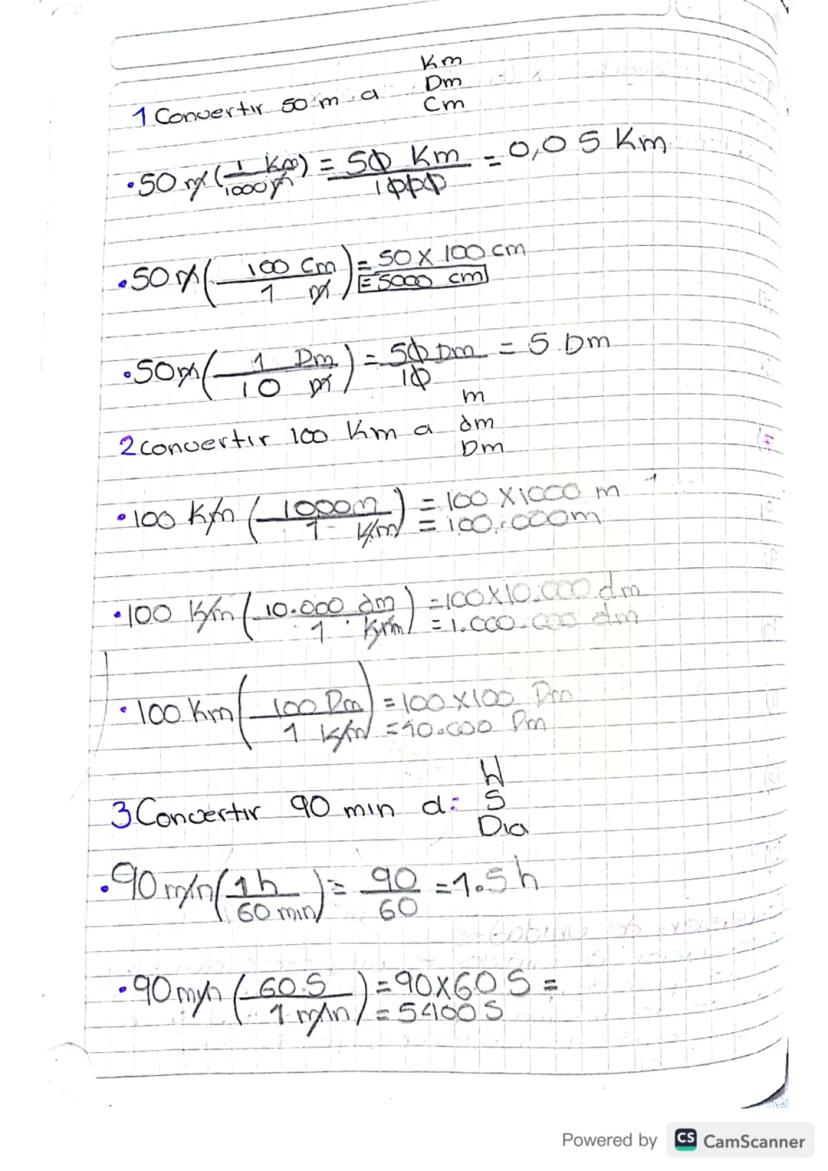 Km
Dm
1 Convertir 50 m a Cm
• 50 m (1 Km / 1000 m) = 50 Km / 1000 = 0,05 Km
• 50 m (100 Cm / 1 m) = 50 X 100 cm
= 5000 cm
• 50 m (1 Dm / 10 m) = 50 Dm / 10 = 5 Dm
m
2 convertir 100 Km a dm
Dm
• 100 Km (1000m / 1 Km) = 100 X 1000 m
= 100.000m
• 100 Km (10.000 dm / 1 Km) = 100 X 10.000 dm
= 1.000.000 dm
• 100 Km (100 Dm / 1 Km) = 100 X 100 Dm
= 10.000 Dm
H
3 Convertir 90 min a: S
Dia
• 90 min (1 h / 60 min) = 90 / 60 = 1.5 h
• 90 min (60 S / 1 min) = 90 X 60 S =
= 5400 S
Powered by CS CamScanner